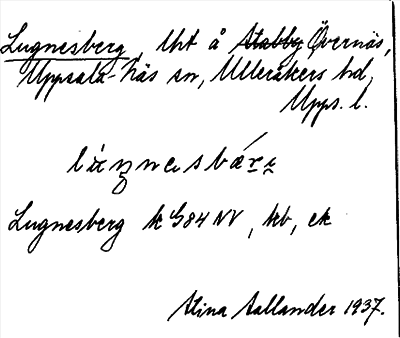 Lugnesberg, lht å Stabby Övernäs,
Uppsala-Näs sn, Ulleråkers hd,
Upps. l.
Lugnesberg k G84 NV, kb, ek
Stina Sallander 1937.